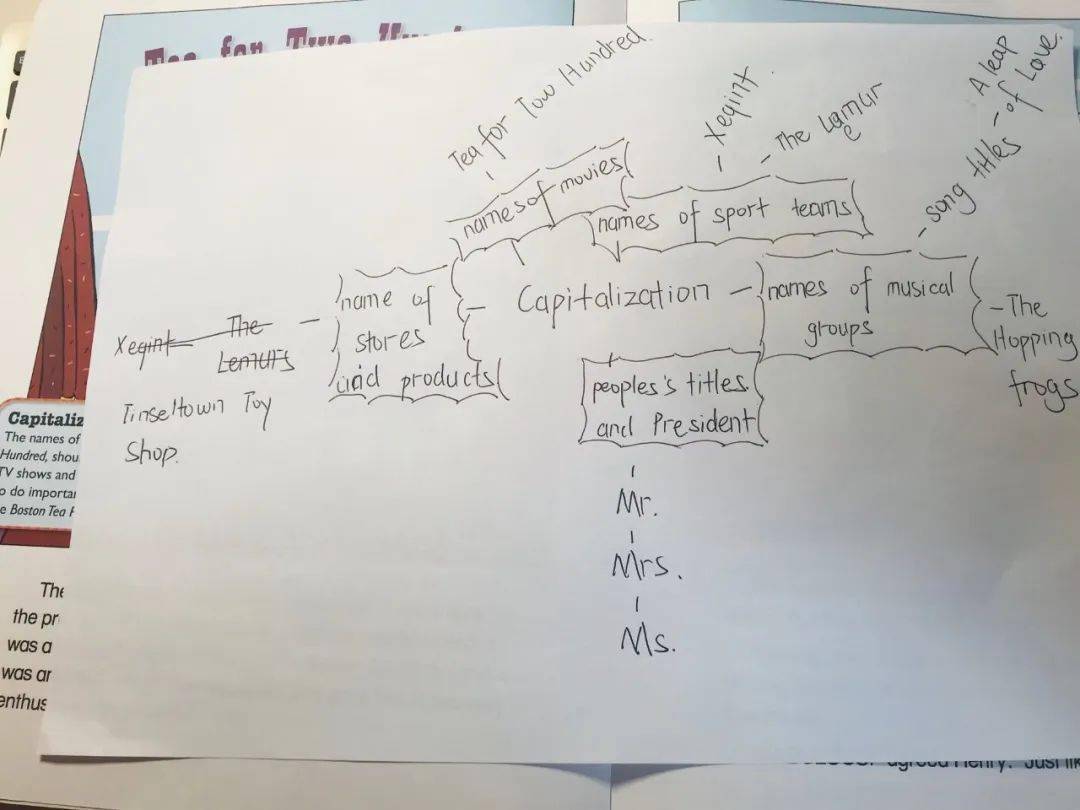 Tea for Two Hun
Tea for Tow Hundred.
names of movies
Xeqint
The Lamur
e
names of sport teams
A leap
song titles - of Love.
Capitalization
names of musical
groups
The
Hopping
frogs
name of
stores
and products
Xeqint The
Lemurs
Tinseltown Toy
Shop.
peoples's titles
and President
Mr.
Mrs.
Ms.
Capitaliz
The names of
Hundred, shou
TV shows and
o do importa
e Boston Tea
The
the pr
was a
was ar
enthus
agreed Henry. Just lik